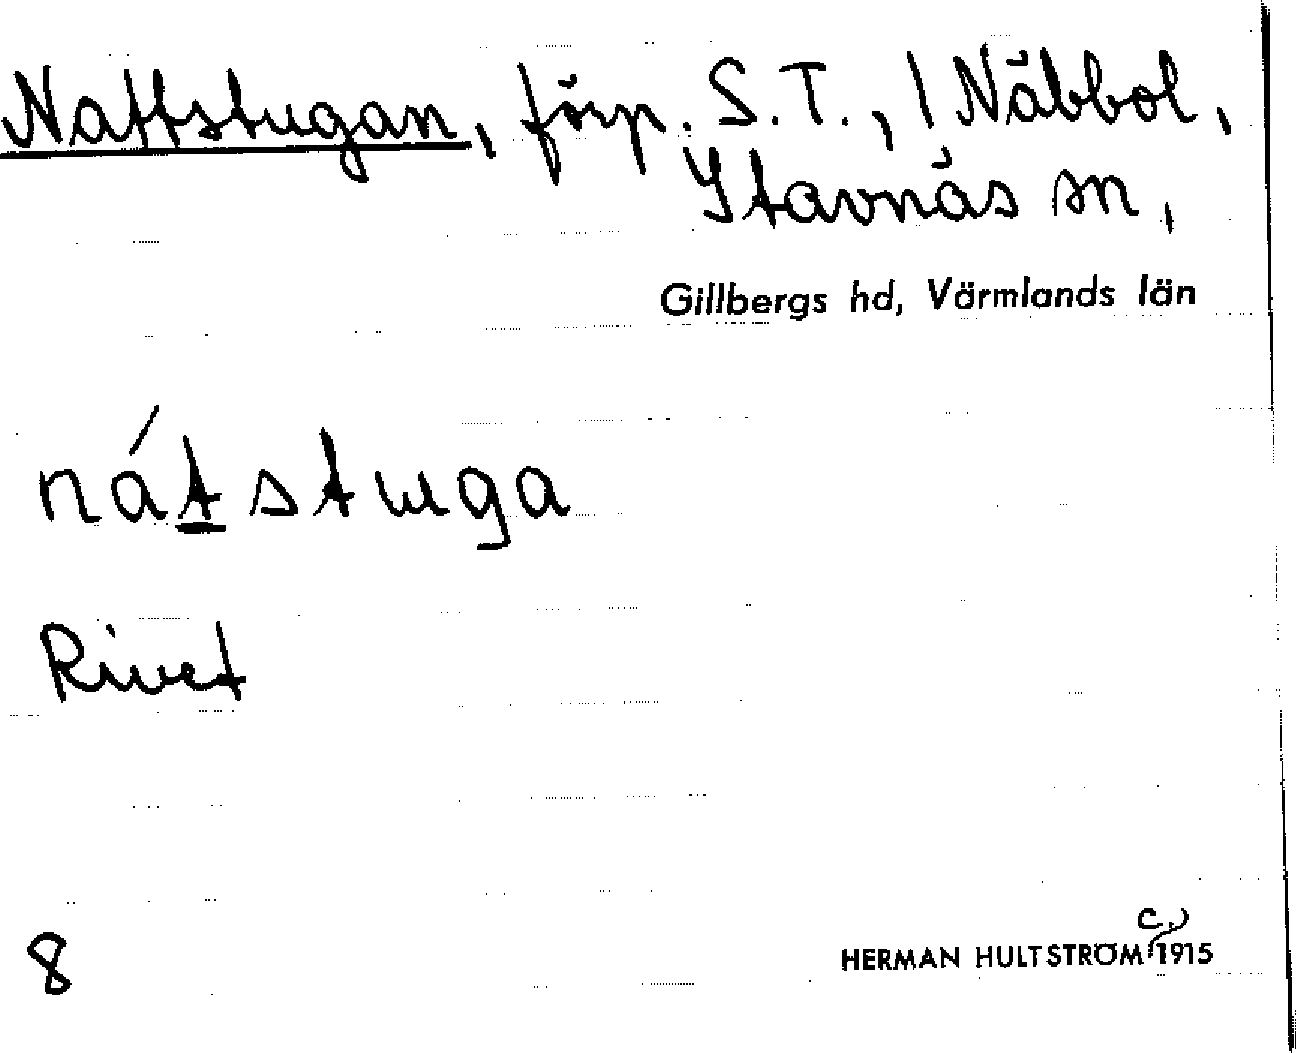 Nattstugan, förp. S.T., ! Näbbol,
Stavnäs sn,
Gillbergs hd, Värmlands län
nát stuga
Rivet
8
C.
HERMAN HULTSTRÖM 1915